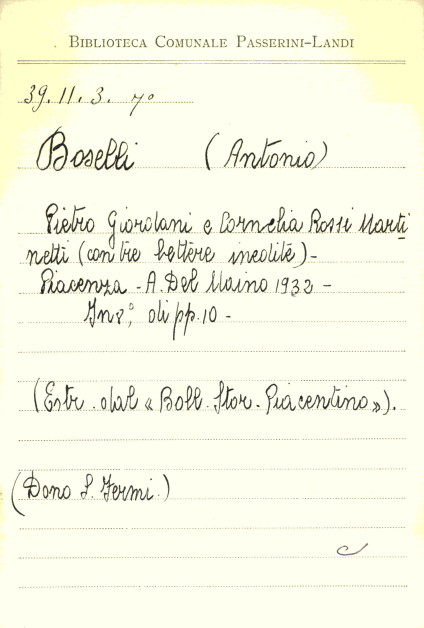 BIBLIOTECA COMUNALE PASSERINI-LANDI
39. II. 3. 7°
Boselli (Antonio)
Pietro Giordani e Cornelia Rossi Marti
netti (con tre lettere inedite) -
Piacenza - A. Del Maino 1932 -
In 8°, di pp. 10 -
(Estr. dal « Boll. Stor. Piacentino »).
(Dono S. Fermi.)